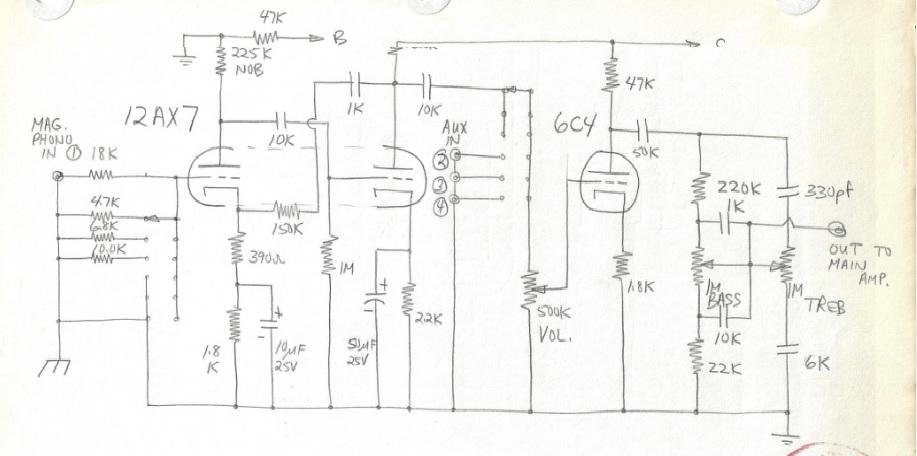 47K
B
225K
NOB
1K
10K
47K
12AX7
10K
AUX
IN
6C4
50K
MAG.
PHONO
IN ① 18K
②
③
④
220K
1K
330pf
4.7K
6.8K
10.0K
150K
OUT TO
MAIN
AMP.
390Ω
1M
1M
BASS
1M
TREB
500K
VOL.
1.8K
22K
10K
1.8
K
10µF
25V
50µF
25V
22K
6K